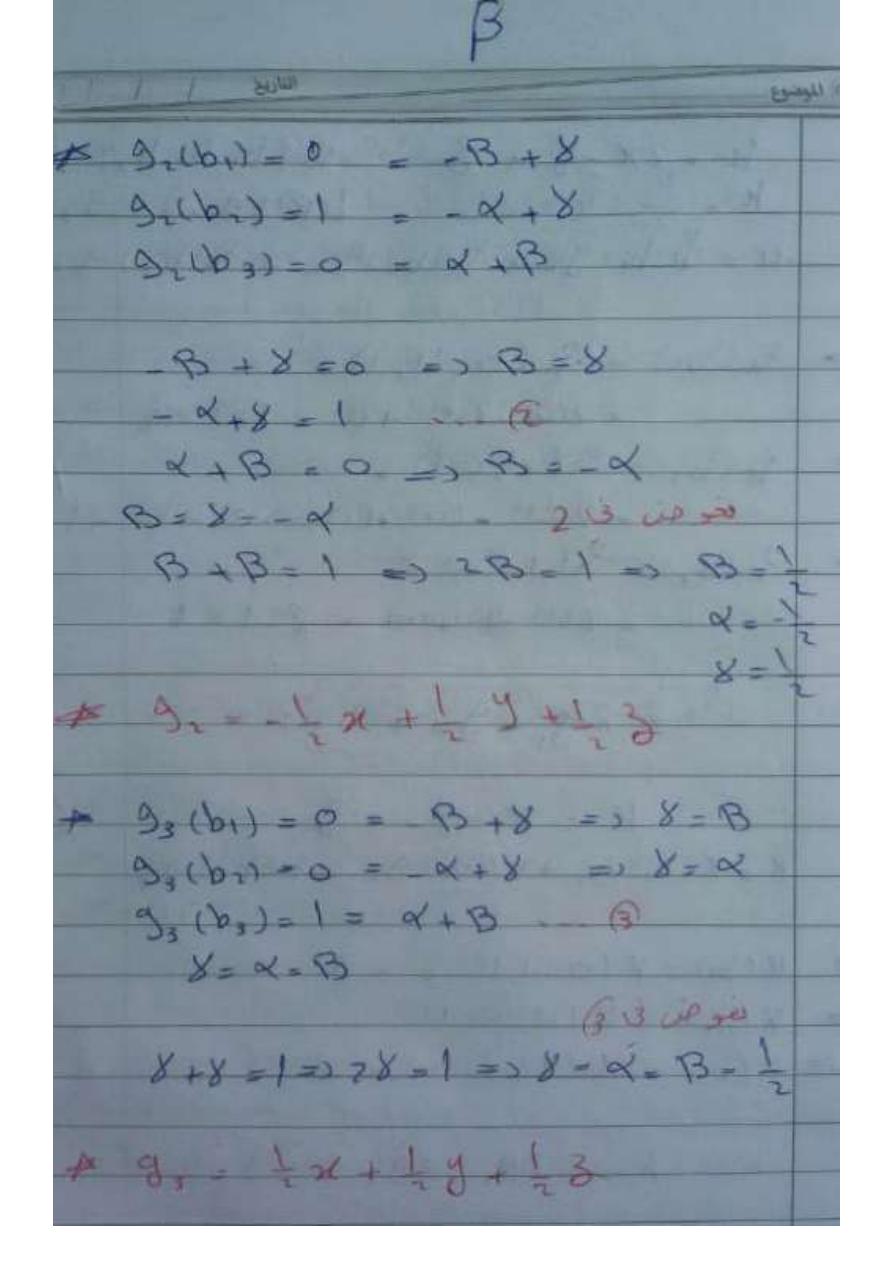 β
الموضوع التاريخ / /
* g₂(b₁) = 0 = -β + γ
g₂(b₂) = 1 = -α + γ
g₂(b₃) = 0 = α + β
-β + γ = 0 => β = γ
-α + γ = 1 .... ②
α + β = 0 => β = -α
β = γ = -α نعوض في 2
β + β = 1 => 2β = 1 => β = 1/2
α = -1/2
γ = 1/2
* g₂ = -1/2 x + 1/2 y + 1/2 z
* g₃(b₁) = 0 = -β + γ => γ = β
g₃(b₂) = 0 = -α + γ => γ = α
g₃(b₃) = 1 = α + β .... ③
γ = α = β
نعوض في ③
γ + γ = 1 => 2γ = 1 => γ = α = β = 1/2
* g₃ = 1/2 x + 1/2 y + 1/2 z